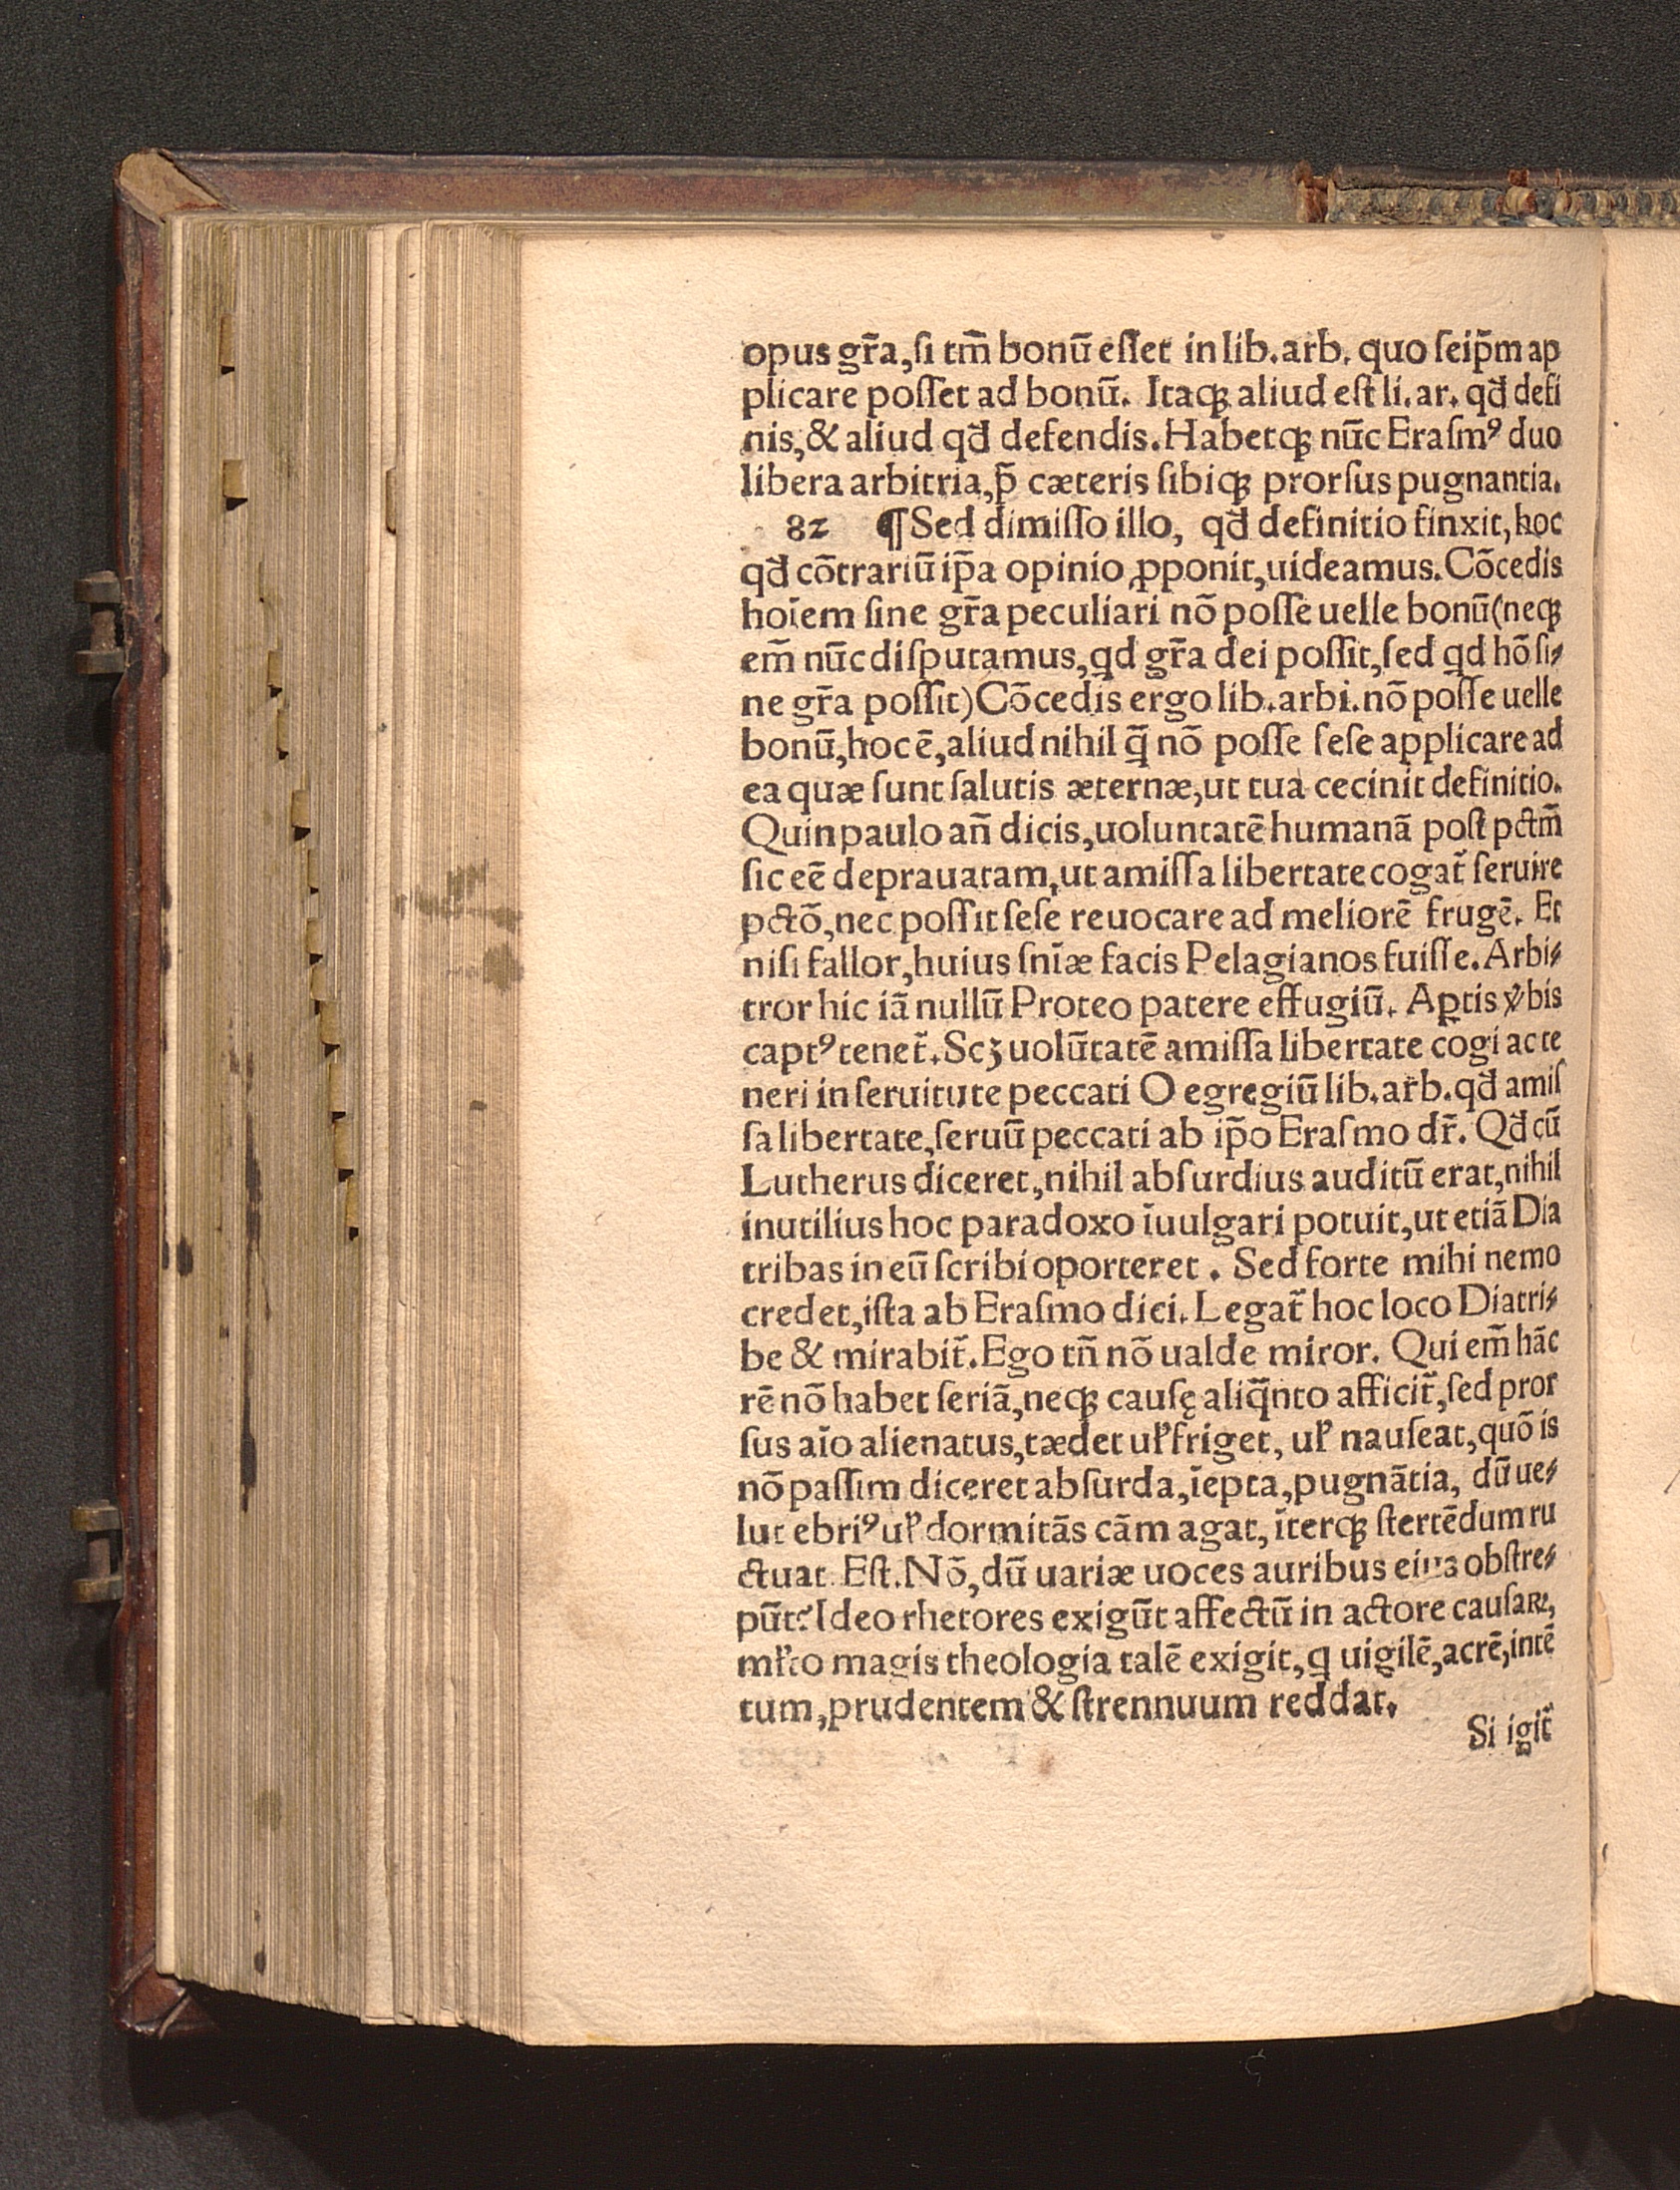 opus gr̃a, ſi tm̃ bonũ eſſet in lib. arb. quo ſeip̃m ap
plicare poſſet ad bonũ. Itaqꝫ aliud eſt li. ar. qđ defi
nis, & aliud qđ defendis. Habetqꝫ nũc Eraſmꝰ duo
libera arbitria, p̃ cæteris ſibiqꝫ prorſus pugnantia.
82 ¶ Sed dimiſſo illo, qđ definitio finxit, hoc
qđ cõtrariũ ip̃a opinio ꝓponit, uideamus. Cõcedis
hoĩem ſine gr̃a peculiari nõ poſſe uelle bonũ (neqꝫ
em̃ nũc diſputamus, qd gr̃a dei poſſit, ſed qd hõ ſi⸗
ne gr̃a poſſit) Cõcedis ergo lib. arbi. nõ poſſe uelle
bonũ, hoc ẽ, aliud nihil q̃ nõ poſſe ſeſe applicare ad
ea quæ ſunt ſalutis æternæ, ut tua cecinit definitio.
Quin paulo añ dicis, uoluntatẽ humanã poſt pctm̃
ſic eẽ deprauatam, ut amiſſa libertate cogat̃ ſeruire
pctõ, nec poſſit ſeſe reuocare ad meliorẽ frugẽ. Et
niſi fallor, huius ſnĩæ facis Pelagianos fuiſſe. Arbi⸗
tror hic iã nullũ Proteo patere effugiũ. Aꝑtis ꝟbis
captꝰ tenet̃. Scꝫ uolũtatẽ amiſſa libertate cogi ac te
neri in ſeruitute peccati O egregiũ lib. arb. qđ amiſ
ſa libertate, ſeruũ peccati ab ip̃o Eraſmo dr̃. Qđ cũ
Lutherus diceret, nihil abſurdius auditũ erat, nihil
inutilius hoc paradoxo ĩuulgari potuit, ut etiã Dia
tribas in eũ ſcribi oporteret. Sed forte mihi nemo
credet, iſta ab Eraſmo dici. Legat̃ hoc loco Diatri⸗
be & mirabit̃. Ego tñ nõ ualde miror. Qui em̃ hãc
rẽ nõ habet ſeriã, neqꝫ cauſę aliq̃nto afficit̃, ſed pror
ſus aĩo alienatus, tædet uł friget, uł nauſeat, quõ is
nõ paſſim diceret abſurda, ĩepta, pugnãtia, dũ ue⸗
lut ebriꝰ uł dormitãs cãm agat, ĩterqꝫ ſtertẽdum ru
ctuat Eſt. Nõ, dũ uariæ uoces auribus eius obſtre⸗
pũt? Ideo rhetores exigũt affectũ in actore cauſaꝝ,
młto magis theologia talẽ exigit, q uigilẽ, acrẽ, intẽ
tum, prudentem & ſtrennuum reddat.
Si igit̃